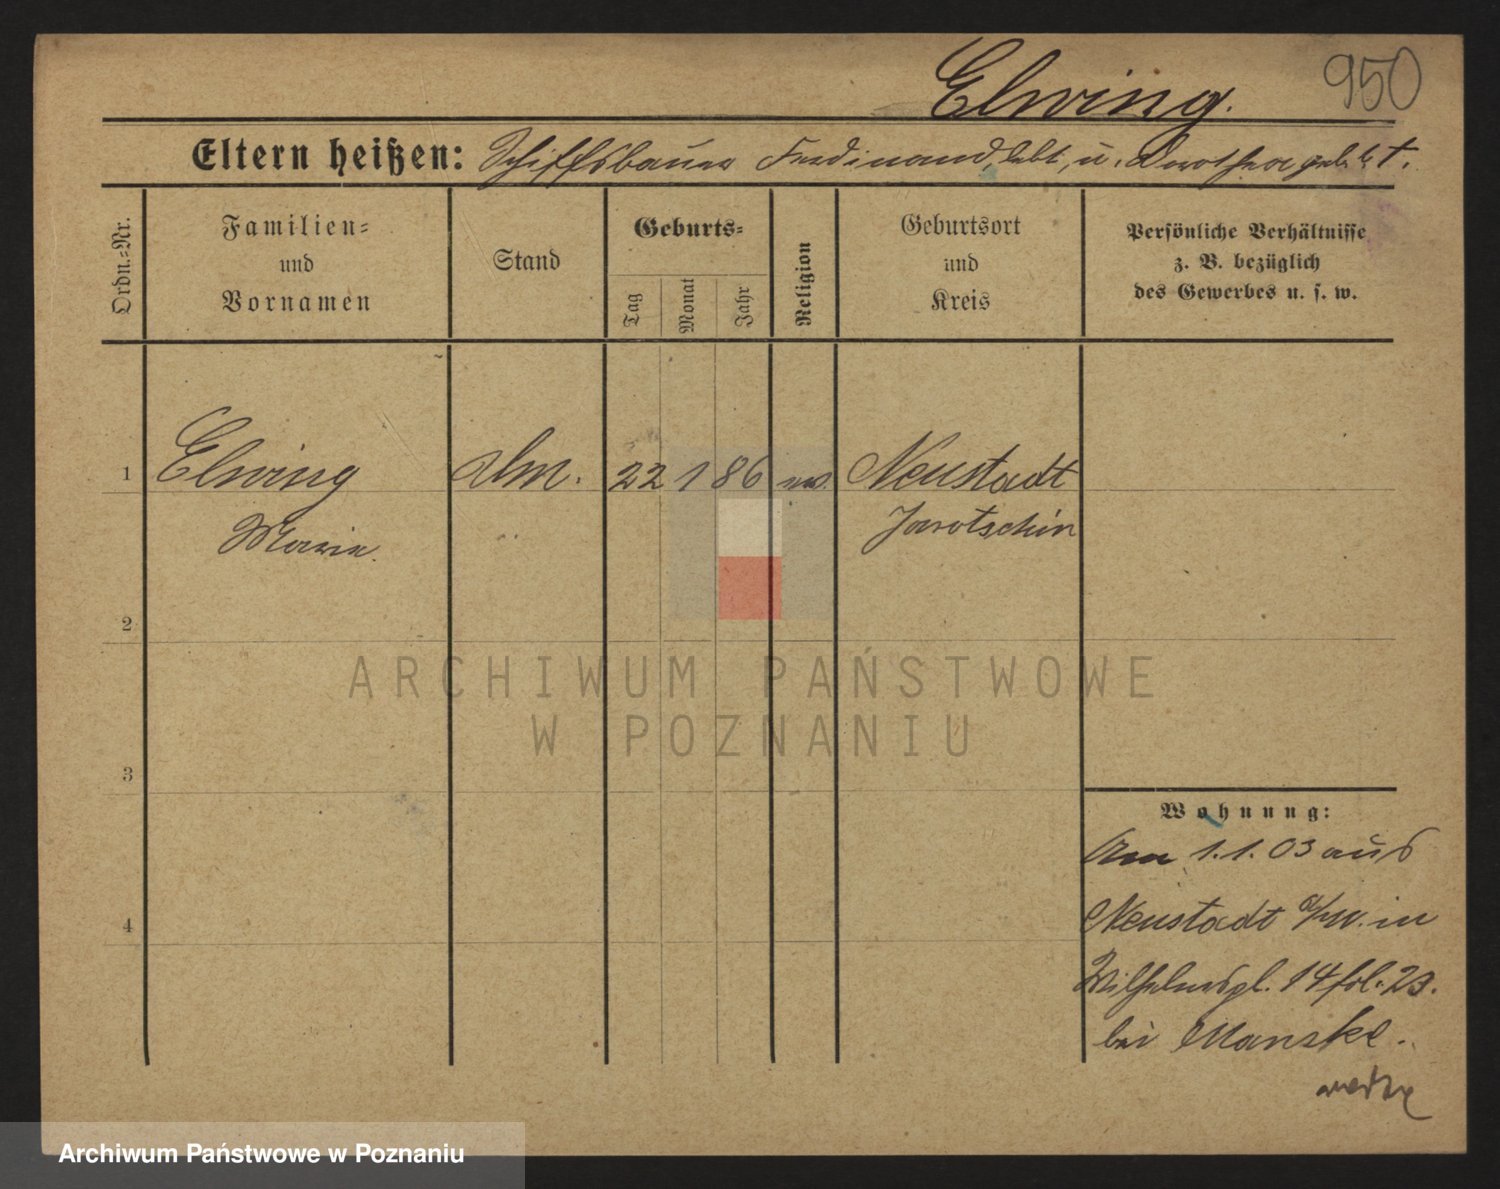 Elwing.
950
Eltern heißen: Schiffsbauer Ferdinand, lebt, u. Dorothea geb. E. †.
Ordn.-Nr.
Familien- und Vornamen
Stand
Geburts-
Tag
Monat
Jahr
Religion
Geburtsort und Kreis
Persönliche Verhältnisse
z. B. bezüglich
des Gewerbes u. s. w.
1 Elwing 22 1 86 ev. Neustadt
Marie Jarotschin
2
3
4
Wohnung:
Am 1.1.03 aus
Neustadt a/W. in
Wilhelmspl. 14
bei Manske.
ARCHIWUM PAŃSTWOWE
W POZNANIU
Archiwum Państwowe w Poznaniu